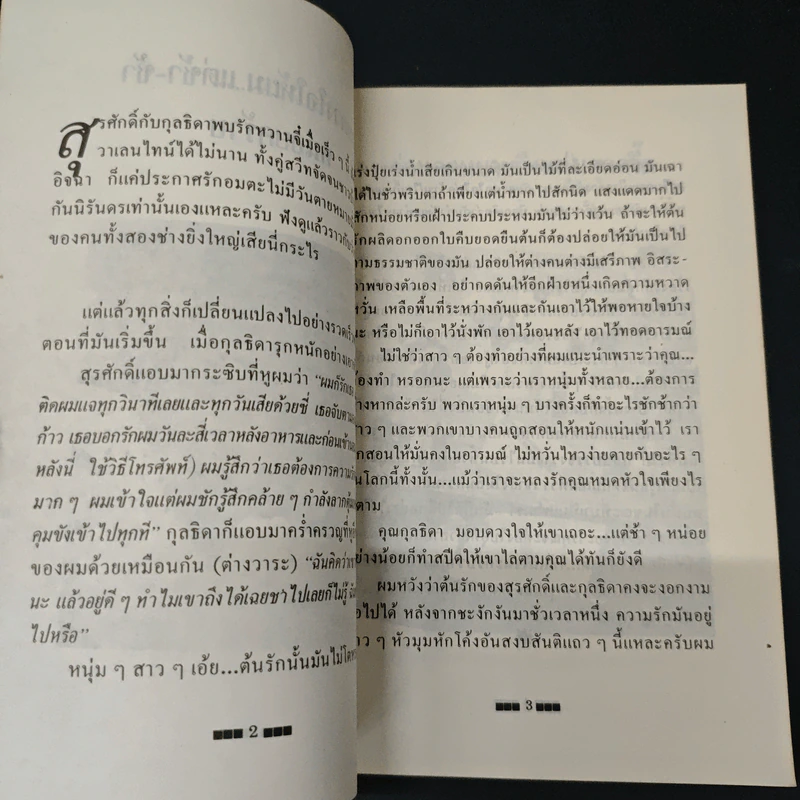 สุรศักดิ์กับกุลธิดาพบรักหวานจี๋เมื่อเร็ว ๆ นี้
วาเลนไทน์ได้ไม่นาน ทั้งคู่สวีทจัดจน
อิจฉา ก็แค่ประกาศรักอมตะไม่มีวันตาย
กันนิรันดรเท่านั้นเองแหละครับ ฟังดูแล้ว
ของคนทั้งสองช่างยิ่งใหญ่เสียนี่กระไร
แต่แล้วทุกสิ่งก็เปลี่ยนแปลงไปอย่างรวดเร็ว
ตอนที่มันเริ่มขึ้น เมื่อกุลธิดารุกหนักอย่าง
สุรศักดิ์แอบมากระซิบที่หูผมว่า “ผมก็รัก
ติดผมแจทุกวินาทีเลยและทุกวันเสียด้วยซี่ เธอจับ
ก้าว เธอบอกรักผมวันละสี่เวลาหลังอาหารและก่อนเข้า
หลังนี่ ใช้วิธีโทรศัพท์) ผมรู้สึกว่าเธอต้องการความ
มาก ๆ ผมเข้าใจแต่ผมชักรู้สึกคล้าย ๆ กำลังลาก
คุมขังเข้าไปทุกที” กุลธิดาก็แอบมาคร่ำครวญที่
ของผมด้วยเหมือนกัน (ต่างวาระ) “ฉันคิดว่า
นะ แล้วอยู่ดี ๆ ทำไมเขาถึงได้เฉยชาไปเลยก็ไม่รู้
ไปหรือ”
หนุ่ม ๆ สาว ๆ เอ้ย...ต้นรักนั้นมันไม่
2
เร่งปุ๋ยเร่งน้ำเสียเกินขนาด มันเป็นไม้ที่ละเอียดอ่อน มันเฉา
ได้ในชั่วพริบตาถ้าเพียงแต่น้ำมากไปสักนิด แสงแดดมากไป
สักหน่อยหรือเฝ้าประคบประหงมมันไม่ว่างเว้น ถ้าจะให้ต้น
รักผลิดอกออกใบคืบยอดยืนต้นก็ต้องปล่อยให้มันเป็นไป
ตามธรรมชาติของมัน ปล่อยให้ต่างคนต่างมีเสรีภาพ อิสระ-
ภาพของตัวเอง อย่ากดดันให้อีกฝ่ายหนึ่งเกิดความหวาด
หวั่น เหลือพื้นที่ระหว่างกันและกันเอาไว้ให้พอหายใจบ้าง
นะ หรือไม่ก็เอาไว้นั่งพัก เอาไว้เอนหลัง เอาไว้ทอดอารมณ์
ไม่ใช่ว่าสาว ๆ ต้องทำอย่างที่ผมแนะนำเพราะว่าคุณ...
ต้องทำ หรอกนะ แต่เพราะว่าเราหนุ่มทั้งหลาย...ต้องการ
ต่างหากล่ะครับ พวกเราหนุ่ม ๆ บางครั้งก็ทำอะไรชักช้ากว่า
สาว ๆ และพวกเขาบางคนถูกสอนให้หนักแน่นเข้าไว้ เรา
ถูกสอนให้มั่นคงในอารมณ์ ไม่หวั่นไหวง่ายดายกับอะไร ๆ
ในโลกนี้ทั้งนั้น...แม้ว่าเราจะหลงรักคุณหมดหัวใจเพียงไร
ก็ตาม
คุณกุลธิดา มอบดวงใจให้เขาเถอะ...แต่ช้า ๆ หน่อย
อย่างน้อยก็ทำสปีดให้เขาไล่ตามคุณได้ทันก็ยังดี
ผมหวังว่าต้นรักของสุรศักดิ์และกุลธิดาคงจะงอกงาม
ต่อไปได้ หลังจากชะงักงันมาชั่วเวลาหนึ่ง ความรักมันอยู่
แถว ๆ หัวมุมหักโค้งอันสงบสันติแถว ๆ นี้แหละครับผม
3